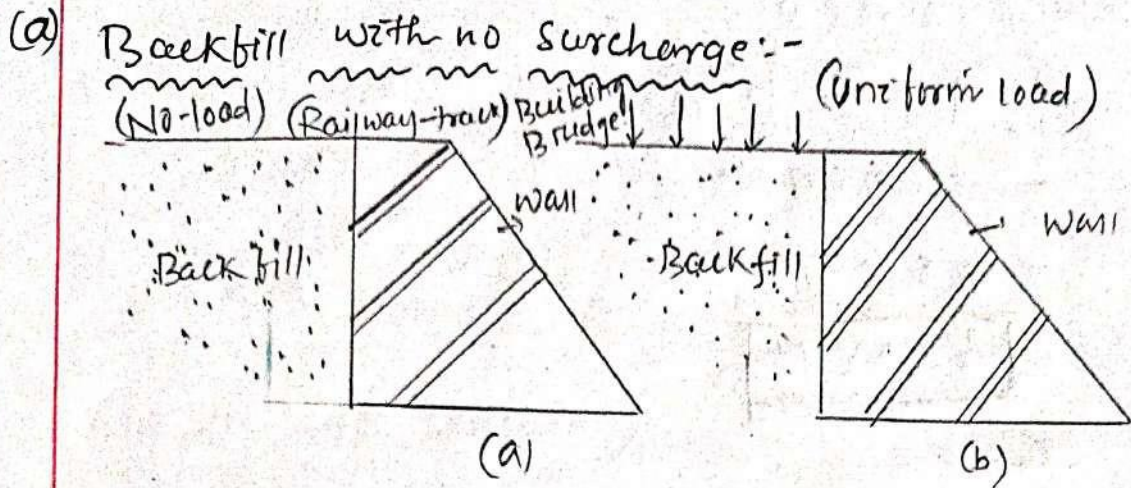 (a) Backfill with no Surcharge:-
(No-load) (Railway-track) Building Brudge (Uniform load)
Wall
Wall
Backfill
Backfill
(a)
(b)